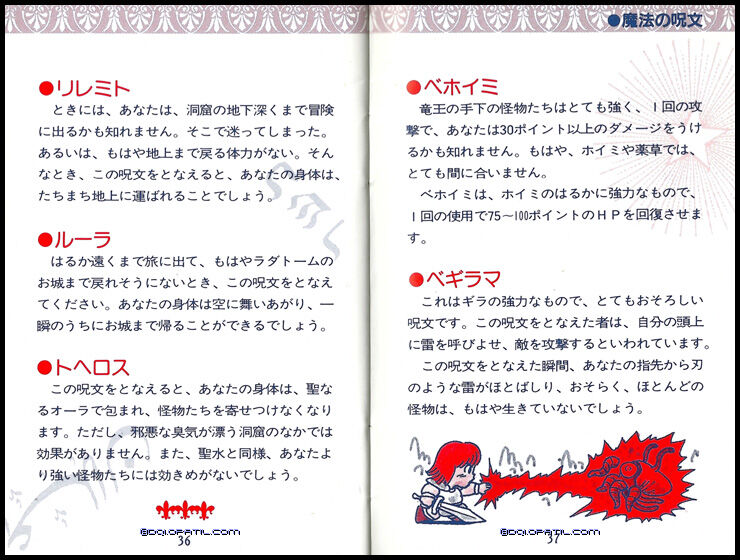 ●リレミト
ときには、あなたは、洞窟の地下深くまで冒険
に出るかも知れません。そこで迷ってしまった。
あるいは、もはや地上まで戻る体力がない。そん
なとき、この呪文をとなえると、あなたの身体は、
たちまち地上に運ばれることでしょう。
●ルーラ
はるか遠くまで旅に出て、もはやラダトームの
お城まで戻れそうにないとき、この呪文をとなえ
てください。あなたの身体は空に舞いあがり、一
瞬のうちにお城まで帰ることができるでしょう。
●トヘロス
この呪文をとなえると、あなたの身体は、聖な
るオーラで包まれ、怪物たちを寄せつけなくなり
ます。ただし、邪悪な臭気が漂う洞窟のなかでは
効果がありません。また、聖水と同様、あなたよ
り強い怪物たちには効きめがないでしょう。
36
●魔法の呪文
●ベホイミ
竜王の手下の怪物たちはとても強く、1回の攻
撃で、あなたは30ポイント以上のダメージをうけ
るかも知れません。もはや、ホイミや薬草では、
とても間に合いません。
ベホイミは、ホイミのはるかに強力なもので、
1回の使用で75〜100ポイントのHPを回復させま
す。
●ベギラマ
これはギラの強力なもので、とてもおそろしい
呪文です。この呪文をとなえた者は、自分の頭上
に雷を呼びよせ、敵を攻撃するといわれています。
この呪文をとなえた瞬間、あなたの指先から刃
のような雷がほとばしり、おそらく、ほとんどの
怪物は、もはや生きていないでしょう。
37